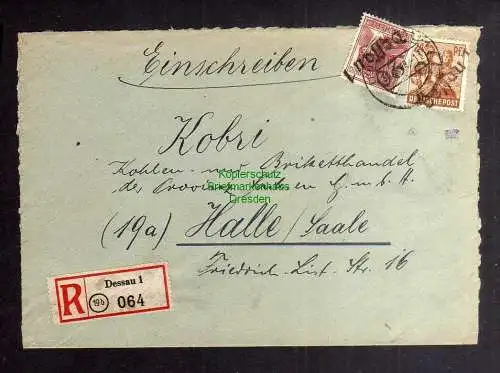 Einschreiben
PF
DEUTSCHE POST
Kobri
Kohlen- und Briketthandel
Kopierschutz
der Provinz Sachsen G.m.b.H.
Briefmarkenhaus
Dresden
(19a) Halle/Saale
Friedrich-List-Str. 16
R
Dessau 1
19b
064